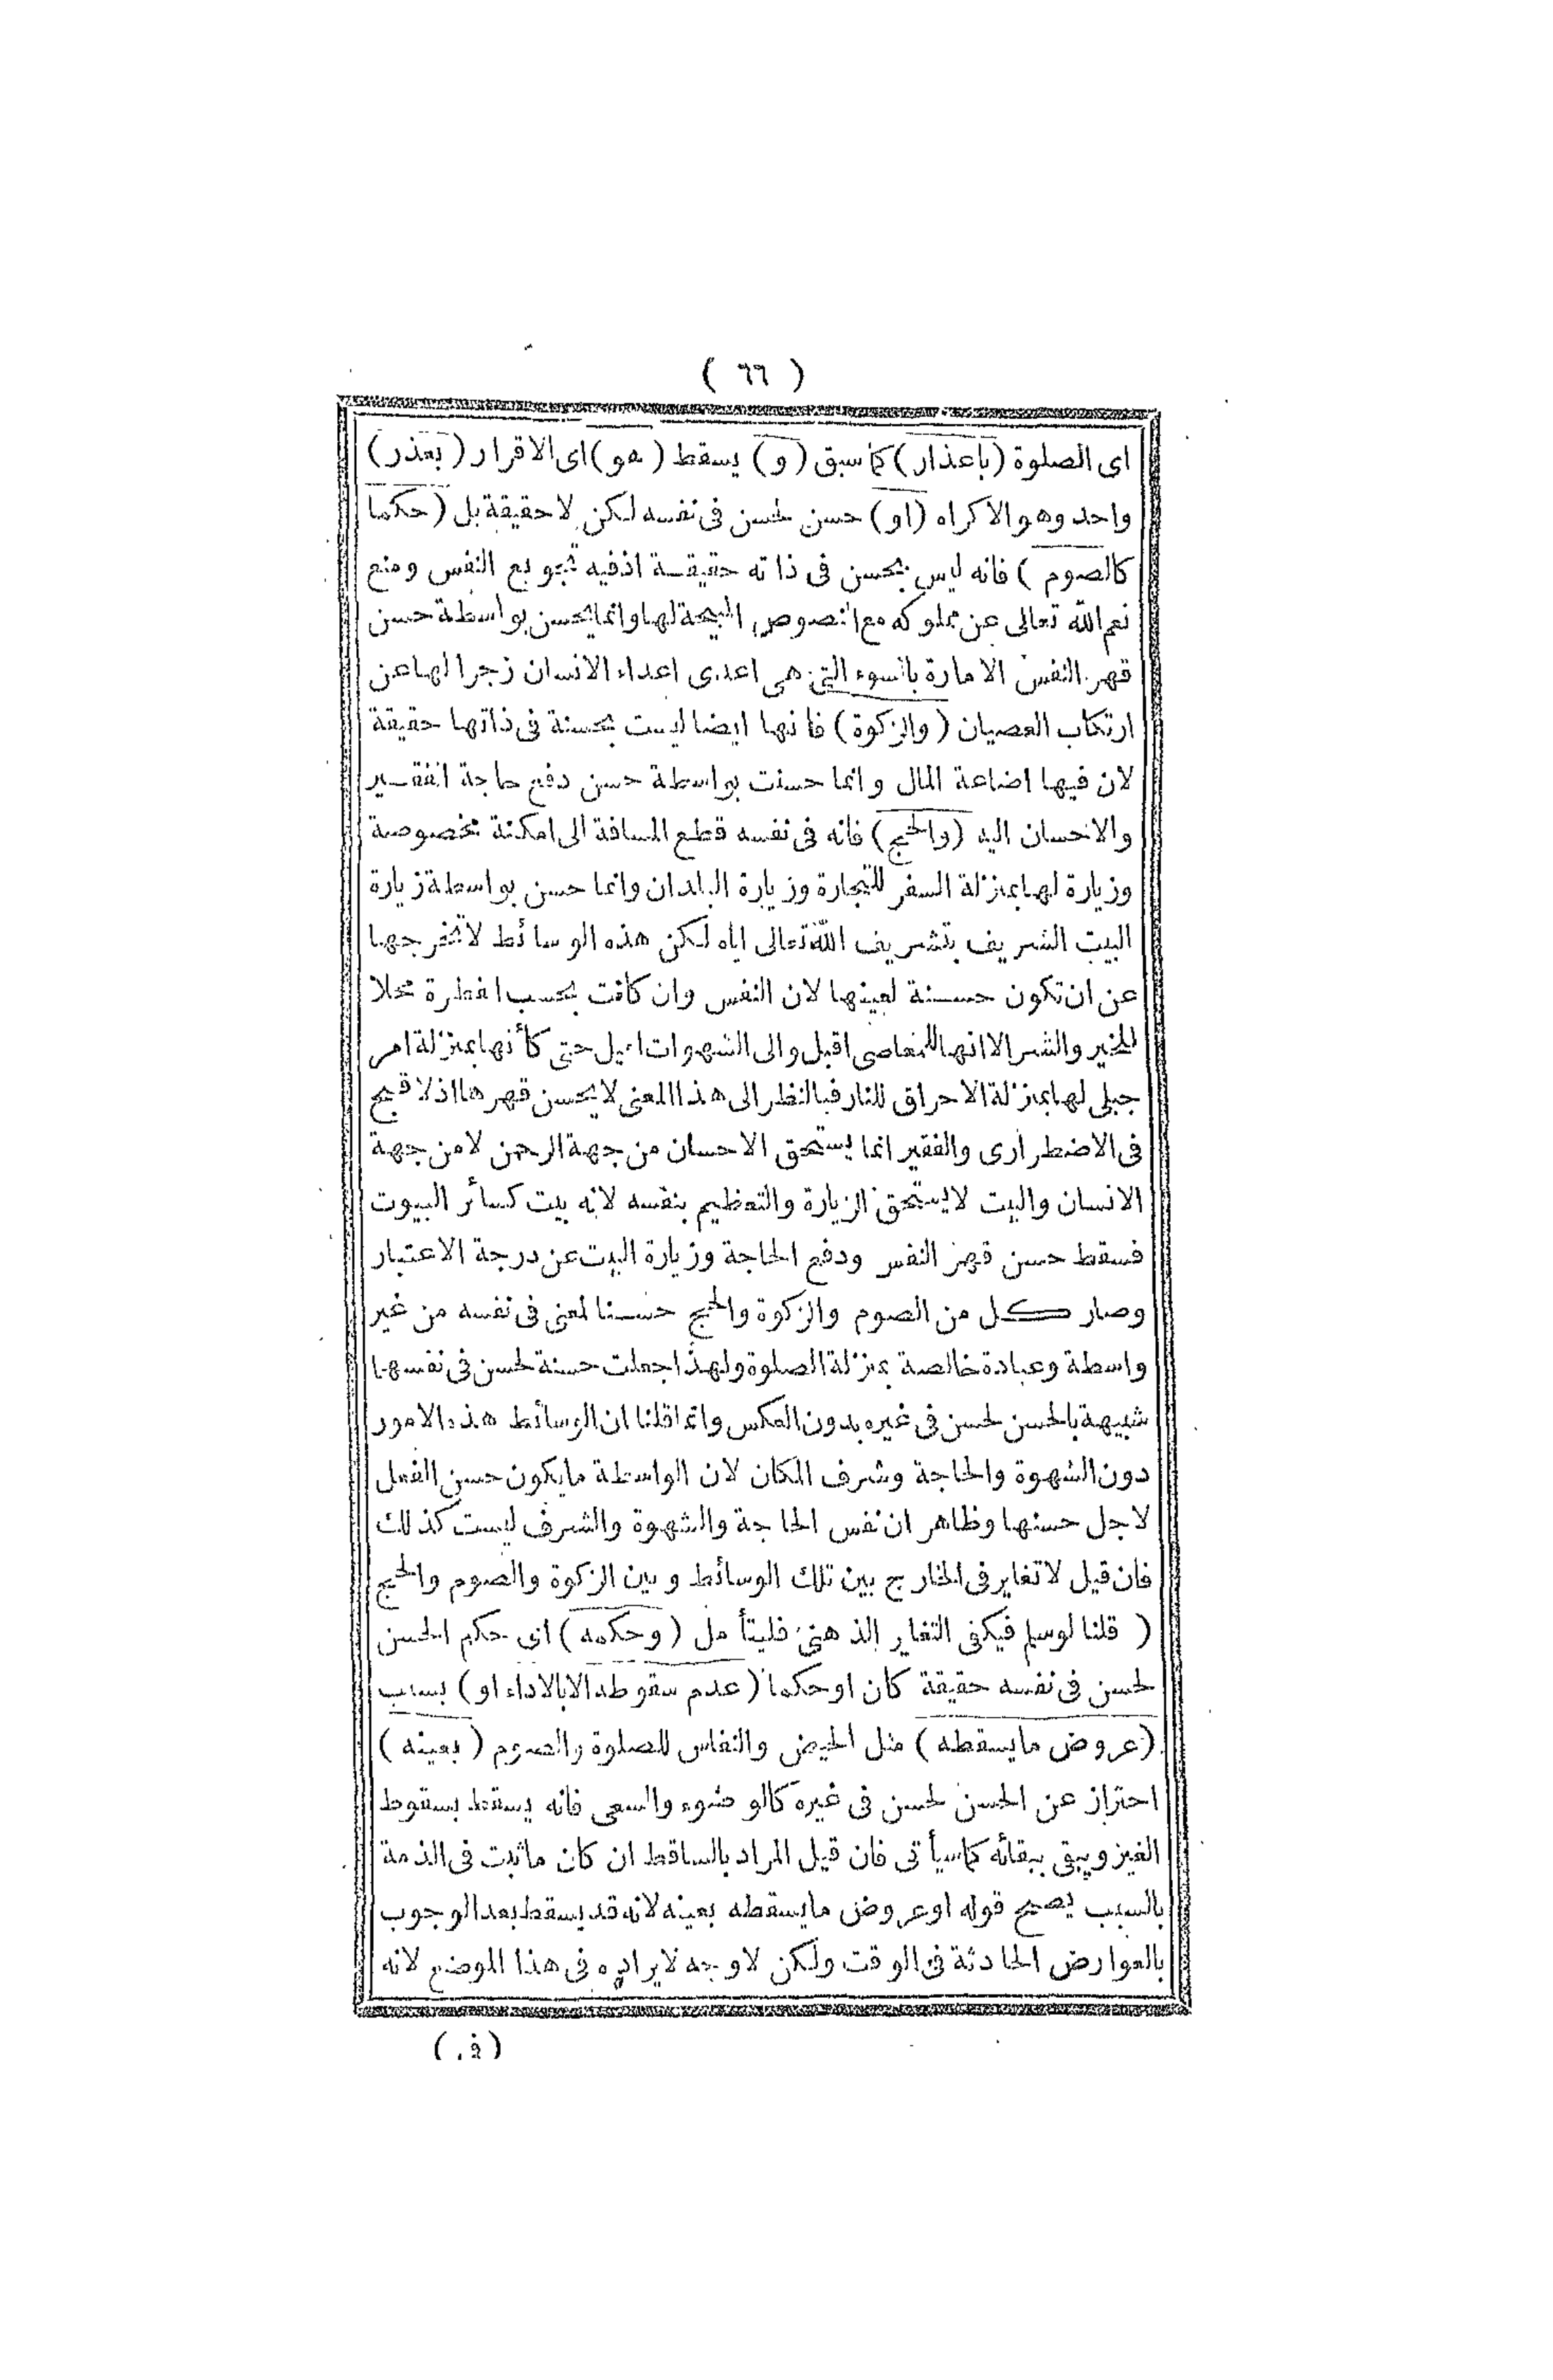 ( ٦٦ )
اى الصلوة (باعذار) كما سبق (و) يسقط (هو) اى الاقرار (بعذر)
واحد وهو الاكراه (او) حسن لحسن فى نفسه لكن لا حقيقة بل (حكما
كالصوم) فانه ليس بحسن فى ذاته حقيقة اذ فيه تجويع النفس ومنع
نعم الله تعالى عن مملوكه مع النصوص المبيحة لها وانما يحسن بواسطة حسن
قهر النفس الامارة بالسوء التى هى اعدى اعداء الانسان زجرا لها عن
ارتكاب العصيان (والزكوة) فانها ايضا ليست بحسنة فى ذاتها حقيقة
لان فيها اضاعة المال وانما حسنت بواسطة حسن دفع حاجة الفقير
والاحسان اليه (والحج) فانه فى نفسه قطع المسافة الى امكنة مخصوصة
وزيارة لها بمنزلة السفر للتجارة وزيارة البلدان وانما حسن بواسطة زيارة
البيت الشريف بتشريف الله تعالى اياه لكن هذه الوسائط لا تخرجها
عن ان تكون حسنة لعينها لان النفس وان كانت بحسب الفطرة محلا
للخير والشر الا انها للمعاصى اقبل والى الشهوات اميل حتى كأنها بمنزلة امر
جبلى لها بمنزلة الاحراق للنار فبالنظر الى هذا المعنى لا يحسن قهرها اذ لا قبح
فى الاضطرارى والفقير انما يستحق الاحسان من جهة الرحمن لا من جهة
الانسان والبيت لا يستحق الزيارة والتعظيم بنفسه لانه بيت كسائر البيوت
فسقط حسن قهر النفس ودفع الحاجة وزيارة البيت عن درجة الاعتبار
وصار كل من الصوم والزكوة والحج حسنا لمعنى فى نفسه من غير
واسطة وعبادة خالصة بمنزلة الصلوة ولهذا جعلت حسنة لحسن فى نفسها
شبيهة بالحسن لحسن فى غيره بدون العكس وانما قلنا ان الوسائط هذه الامور
دون الشهوة والحاجة وشرف المكان لان الواسطة ما يكون حسن الفعل
لاجل حسنها وظاهر ان نفس الحاجة والشهوة والشرف ليست كذلك
فان قيل لا تغاير فى الخارج بين تلك الوسائط وبين الزكوة والصوم والحج
( قلنا لو سلم فيكفى التغاير الذهنى فليتأمل (وحكمه) اى حكم الحسن
لحسن فى نفسه حقيقة كان او حكما (عدم سقوطه الا بالاداء او) بسبب
(عروض ما يسقطه) مثل الحيض والنفاس للصلوة والصوم (بعينه)
احتراز عن الحسن لحسن فى غيره كالوضوء والسعى فانه يسقط بسقوط
الغير ويبقى ببقائه كما سيأتى فان قيل المراد بالساقط ان كان ما ثبت فى الذمة
بالسبب يصح قوله او عروض ما يسقطه بعينه لانه قد يسقط بعد الوجوب
بالعوارض الحادثة فى الوقت ولكن لا وجه لايراده فى هذا الموضع لانه